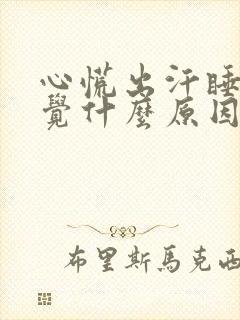 心慌出汗睡
覺什麼原因
布里斯馬克西